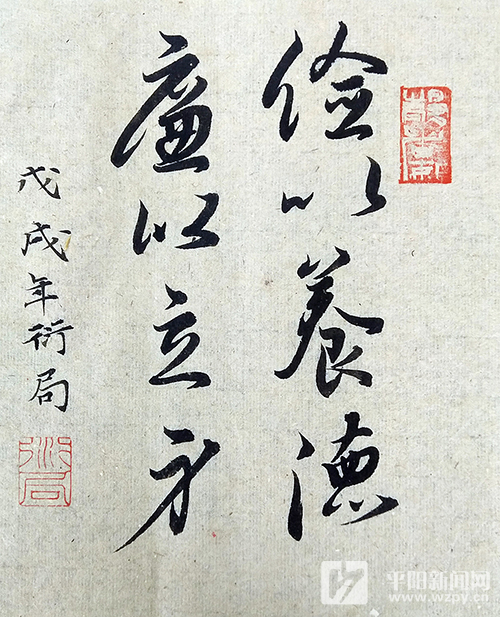 儉以養德
廉以立身
戊戌年衍局
衍局
平阳新闻网
www.wzpy.cn